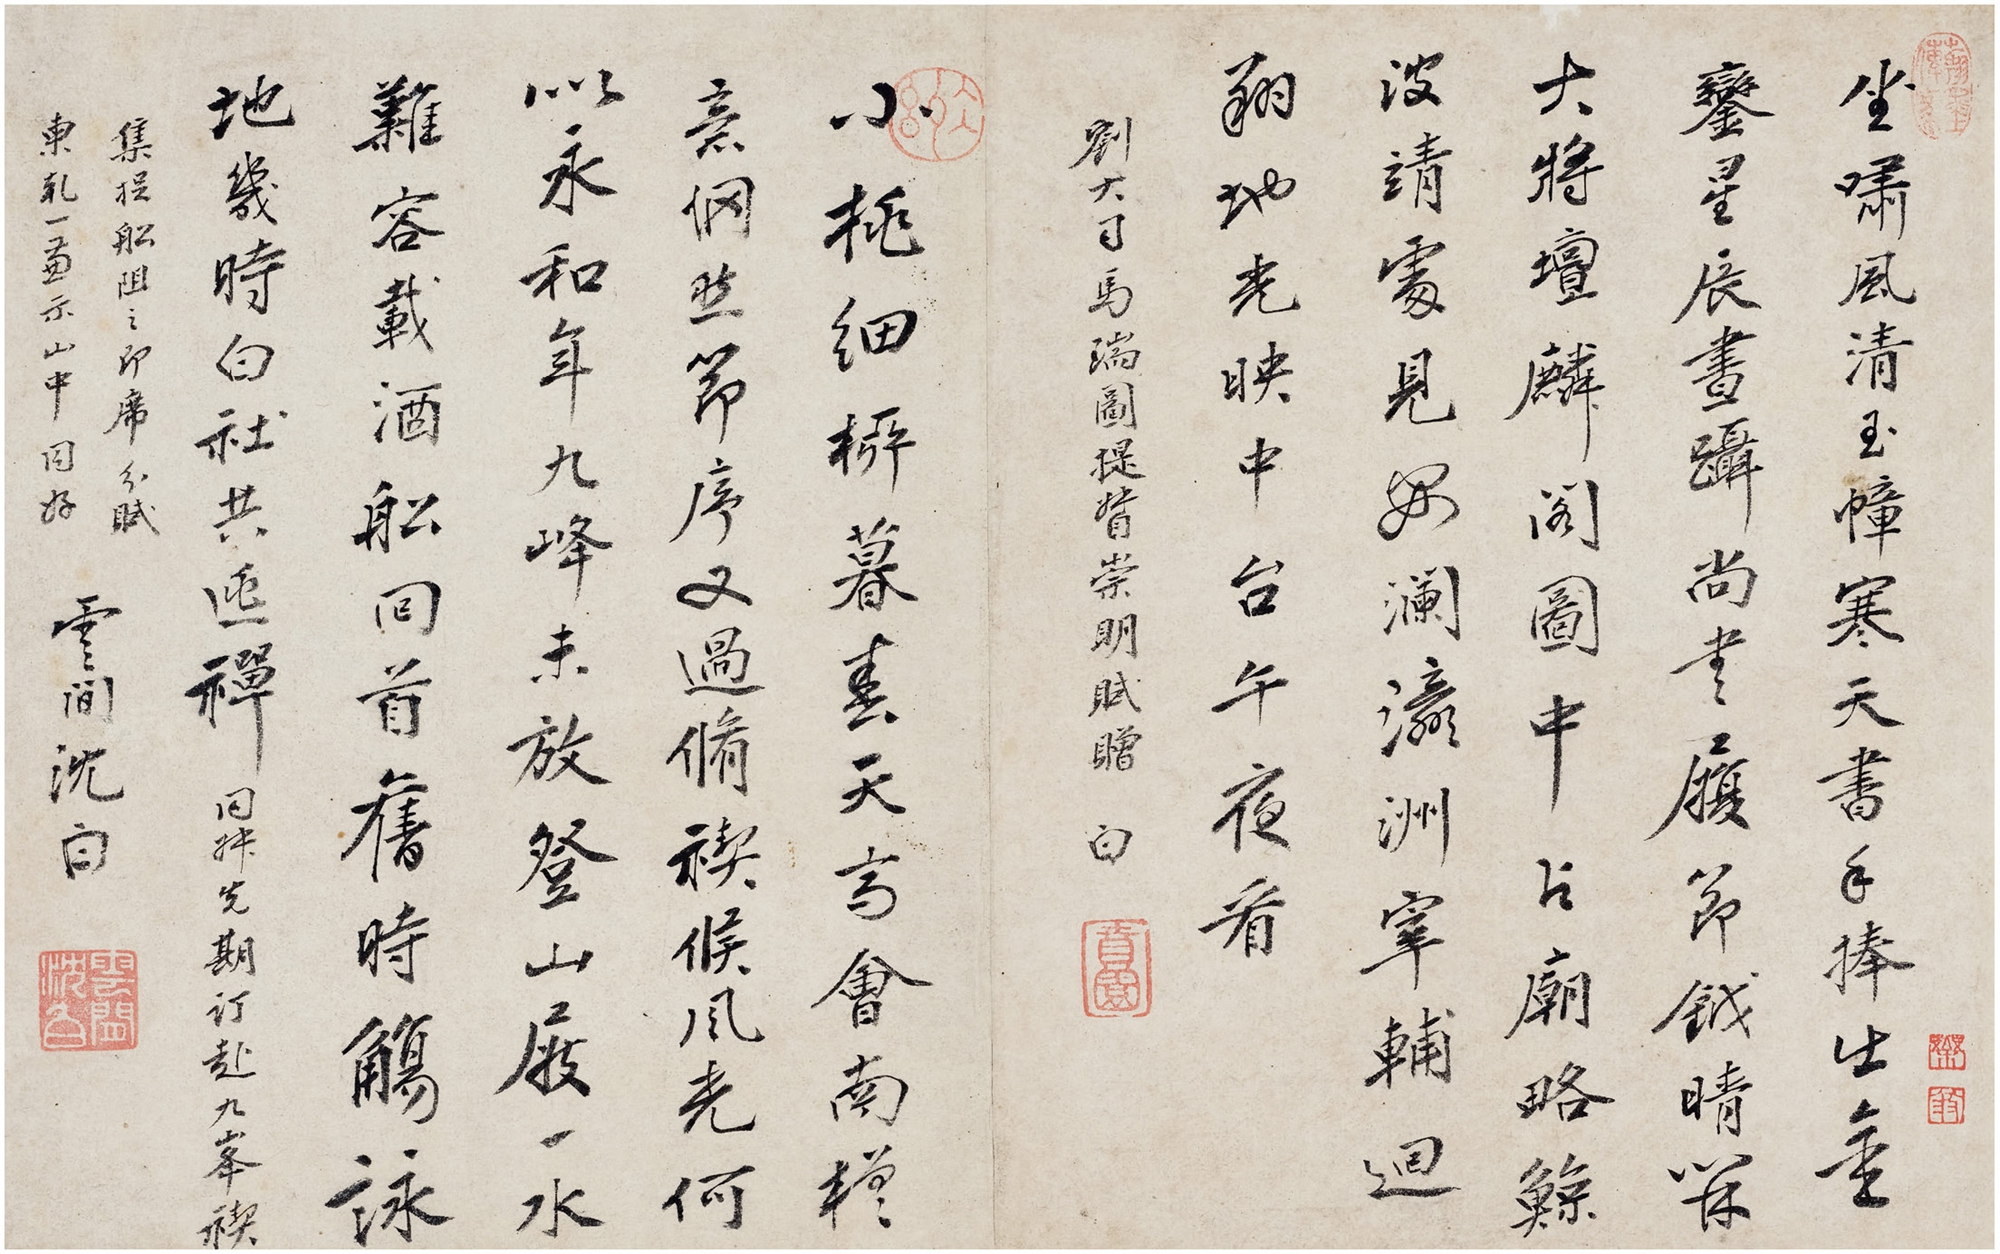 坐嘯風清玉幛寒天書手捧出金
鑾星辰晝躡尚書履節鉞晴開
大將壇麟閣圖中占廟略鯨
波靖處見安瀾瀛洲宰輔迴
翔地光映中台午夜看
劉大司馬瑞圖提督崇明賦贈 白
小桃細柳暮春天高會南樓
意惘然節序又過脩禊候風光何
似永和年九峰未放登山屐一水
難容載酒船回首舊時觴詠
地幾時白社共逃禪 同牀先期訂赴九峯禊
集提船阻之即席分賦
東軋一粲示山中同好
雲間沈白
雲間沈白